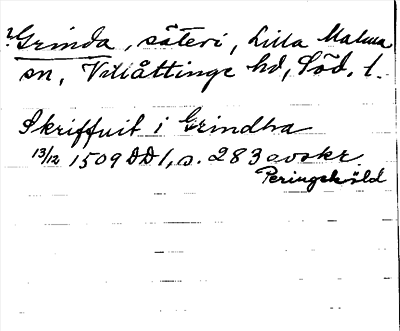 ? Grinda, säteri, Lilla Malma
sn, Villåttinge hd, Söd. l.
Skriffuit i Grindha
13/12 1509 DD1, s. 283 avskr.
Peringskiöld